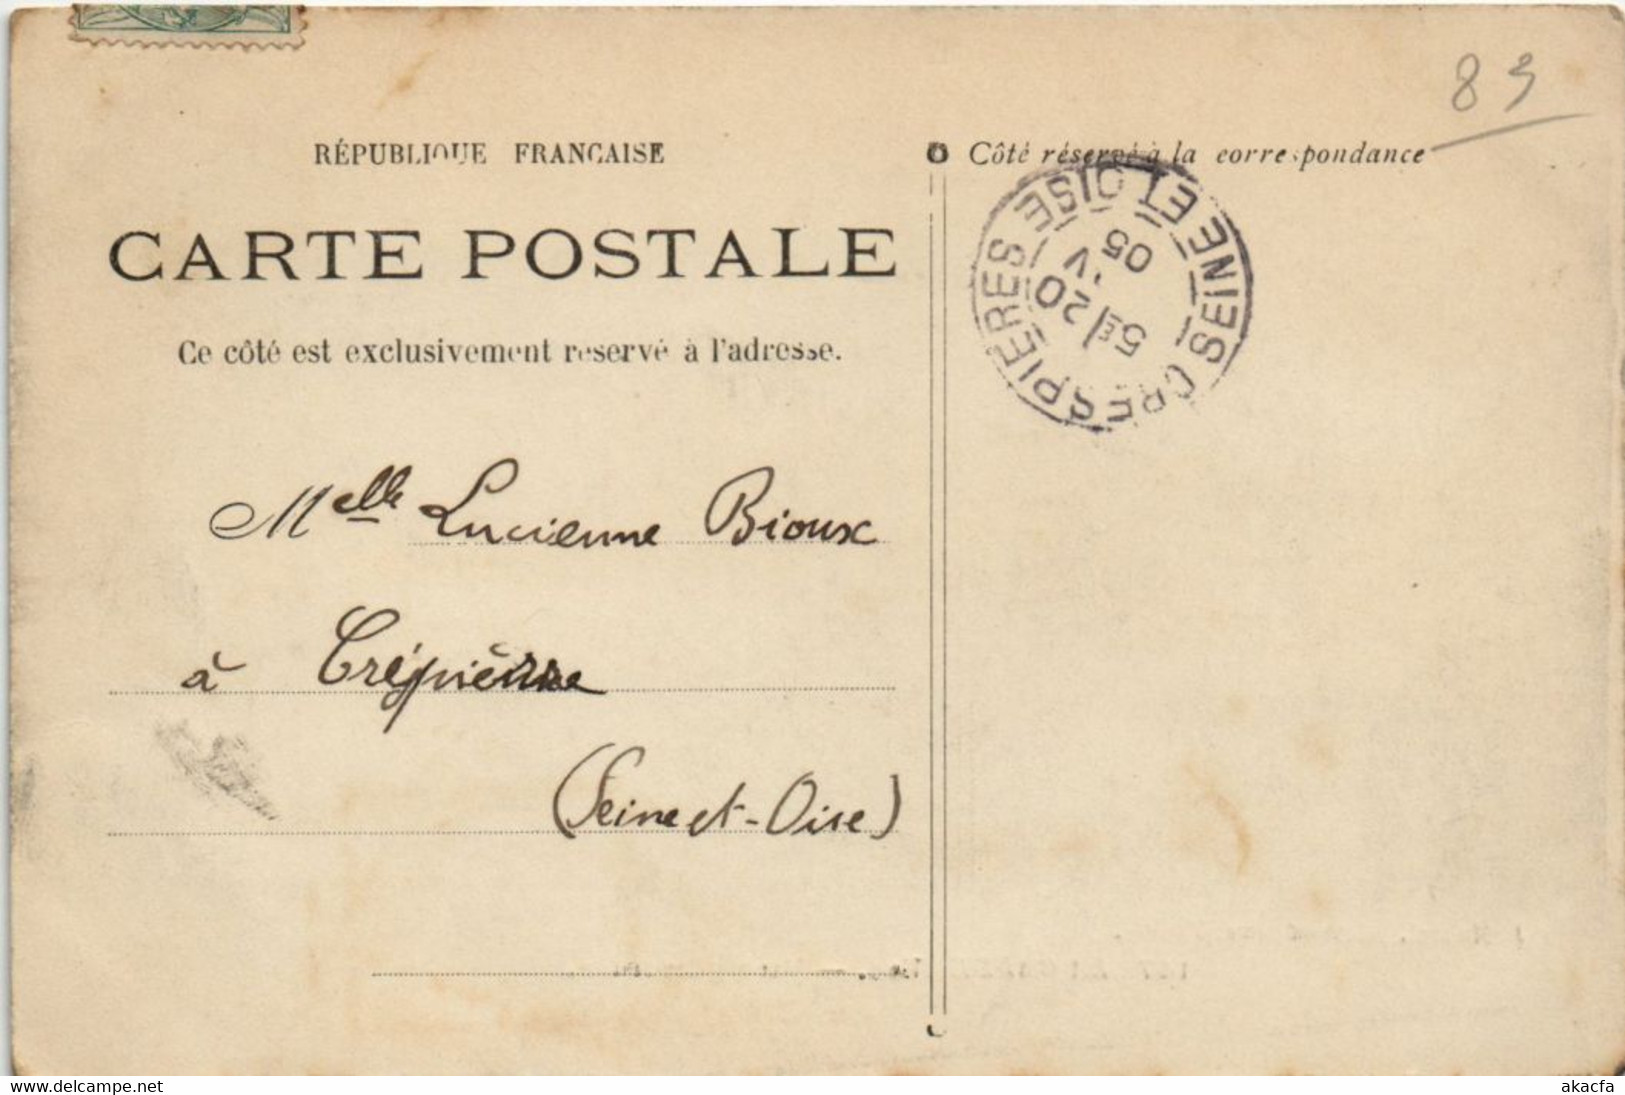 89
RÉPUBLIQUE FRANCAISE
Côté réservé à la correspondance
CRESPIERES SEINE ET OISE
5E 20 V 05
CARTE POSTALE
Ce côté est exclusivement reservé à l'adresse.
Melle Lucienne Bioux
à Crépièrre
(Seine et-Oise)
www.delcampe.net
akacfa